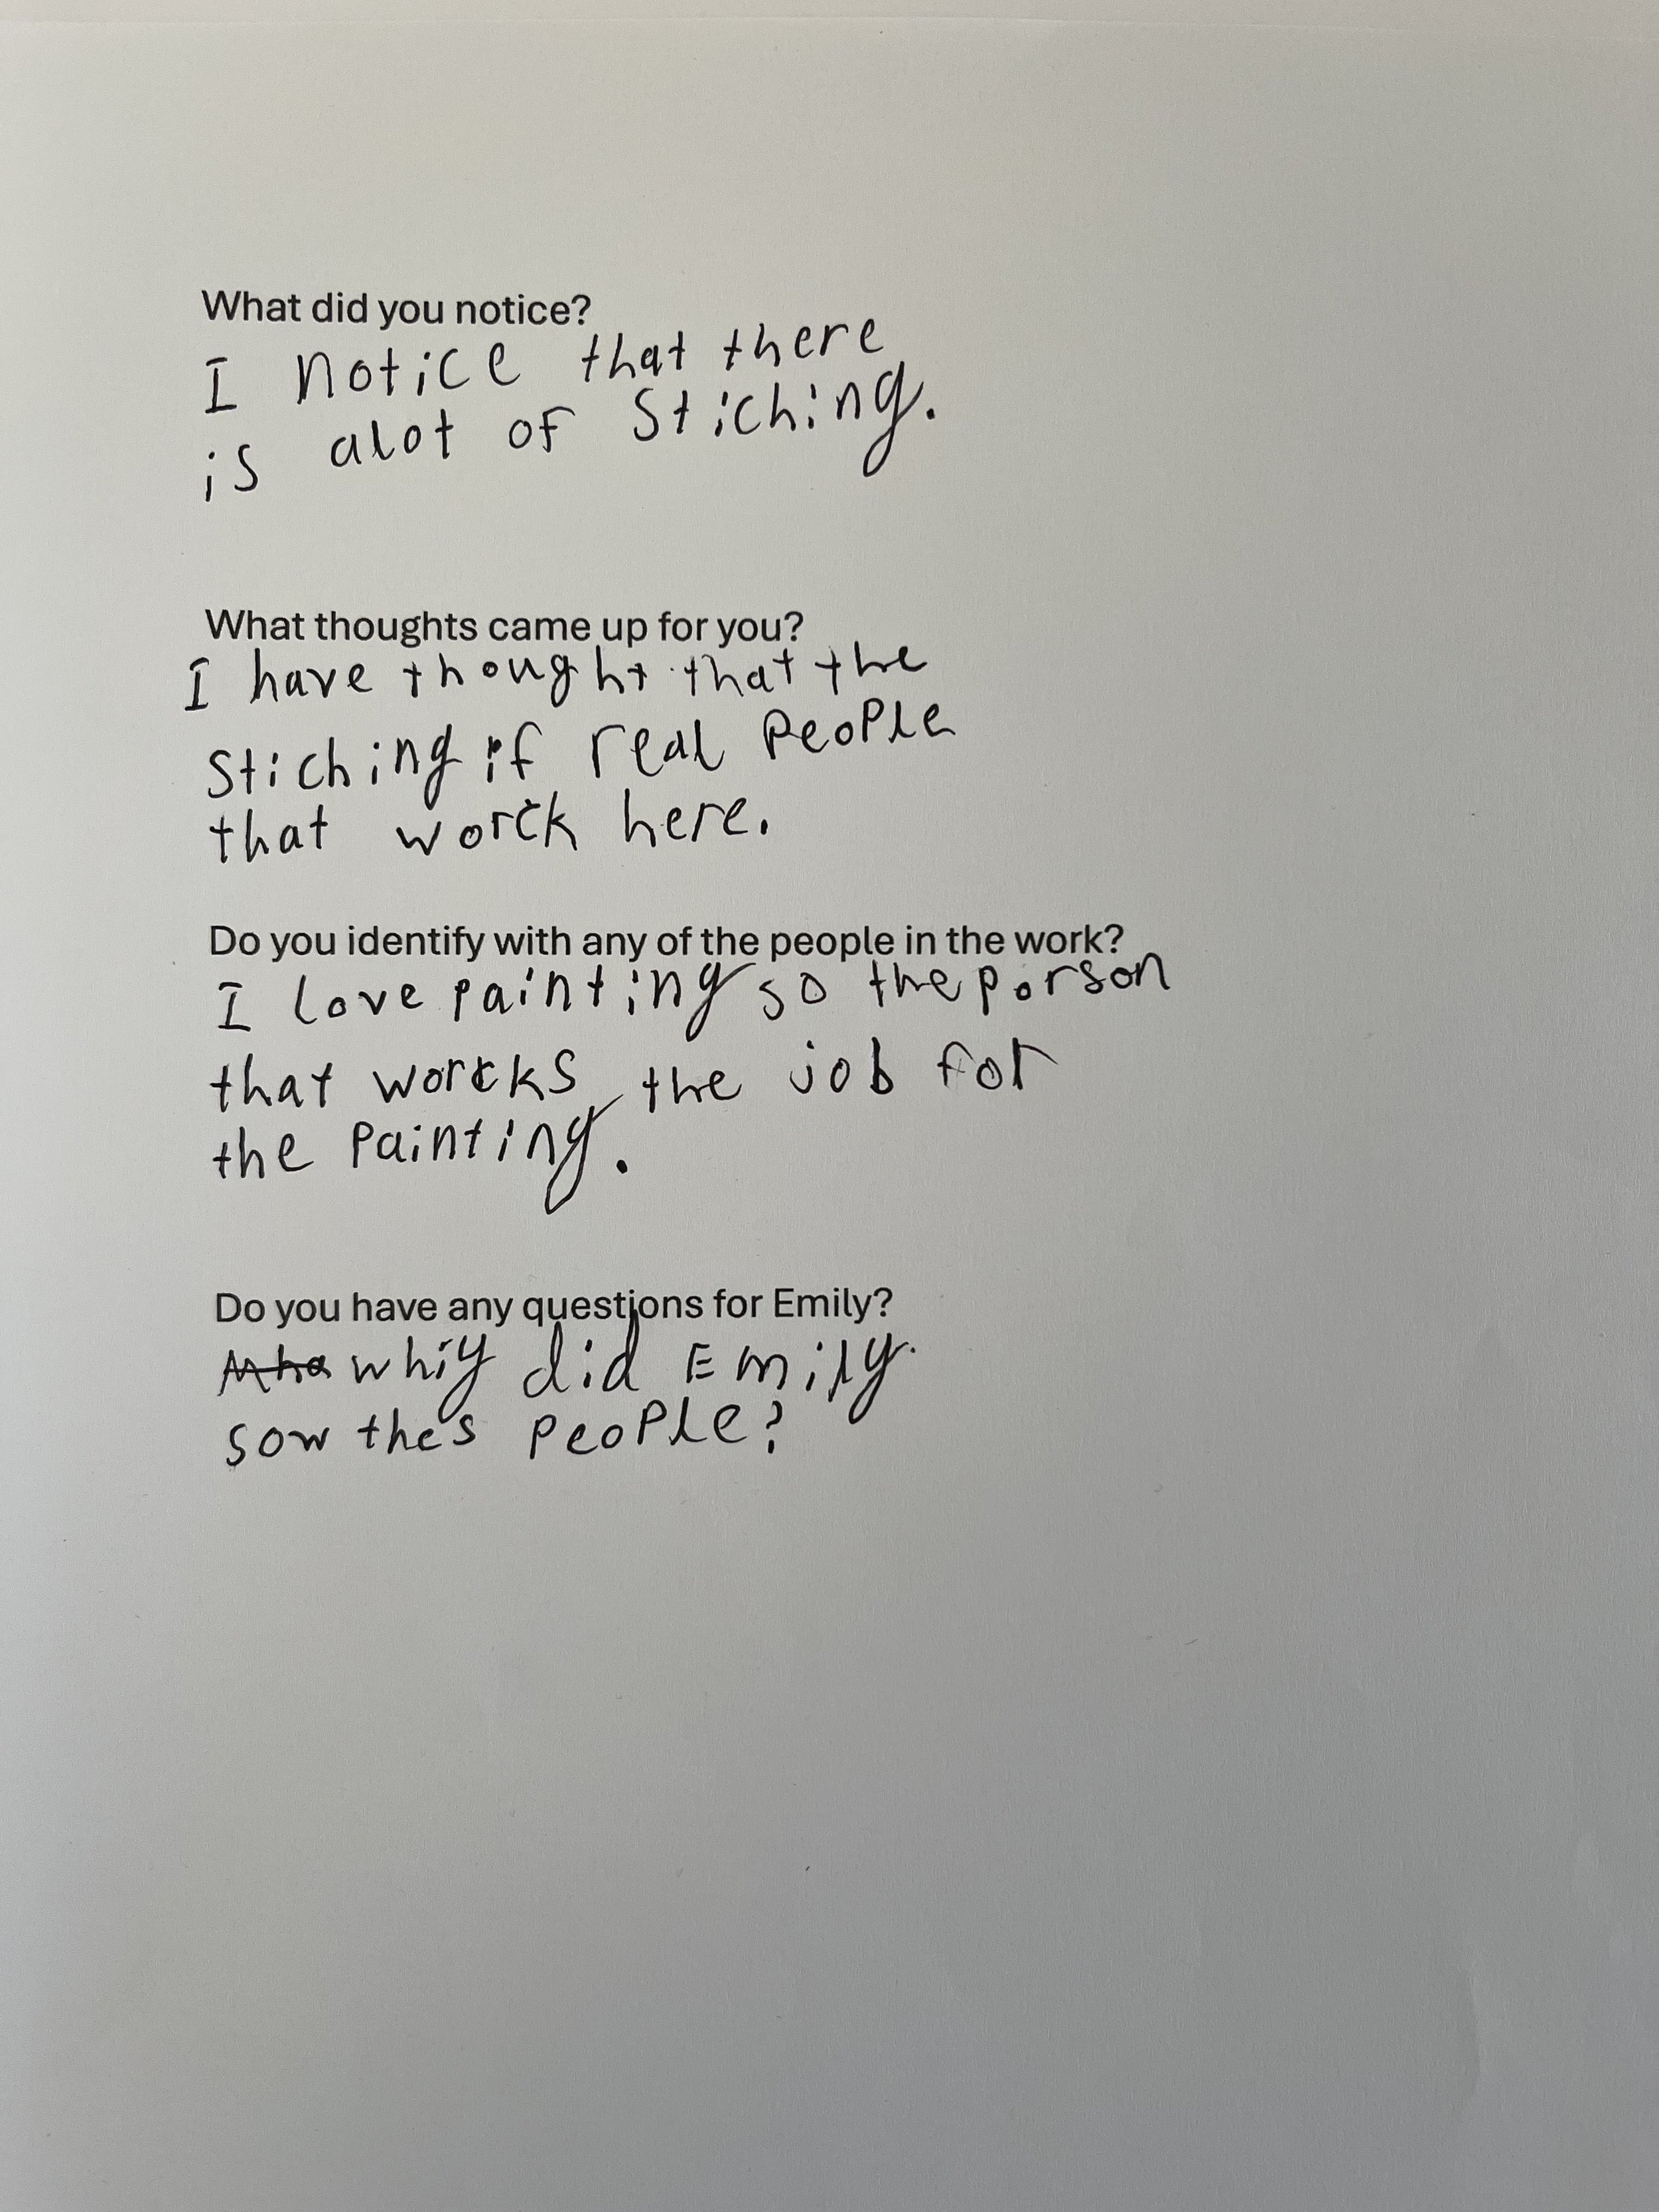 What did you notice?
I notice that there
is alot of Stiching.
What thoughts came up for you?
I have thought that the
Stiching if real People
that worck here.
Do you identify with any of the people in the work?
I love painting so the porson
that worcks the job for
the Painting.
Do you have any questions for Emily?
whiy did Emily
sow thes People?